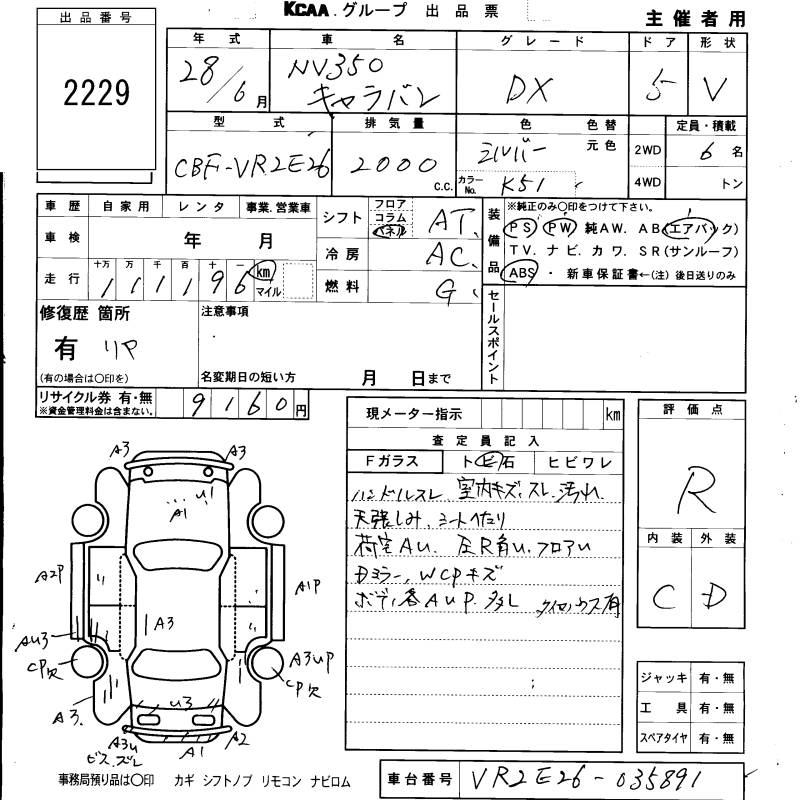 KCAA. グループ 出品票
主催者用
出品番号
2229
年式 車名 グレード ドア 形状
28/6月 NV350 キャラバン DX 5 V
型式 排気量 色 色替 定員・積載
CBF-VR2E26 2000 C.C. シルバー 元色 2WD 6名
カラーNo. K51 4WD トン
車歴 自家用 レンタ 事業.営業車
車検 年 月
走行 十万 万 千 百 十 一
111196 km マイル
シフト フロア コラム パネル AT.
冷房 AC.
燃料 G
装備品
※純正のみ〇印をつけて下さい。
PS PW 純AW. AB(エアバック)
TV. ナビ. カワ. SR(サンルーフ)
ABS ・ 新車保証書←(注) 後日送りのみ
修復歴 箇所
有 リヤ
(有の場合は〇印を)
注意事項
名変期日の短い方 月 日まで
セールスポイント
リサイクル券 有・無
※資金管理料金は含まない。
9160円
現メーター指示 km
査定員記入
Fガラス トビ石 ヒビワレ
ハンドルスレ 室内キズ.スレ.汚れ.
天張しみ、シートへたり
荷室AU. 左R角U.フロアU
Dミラー、WCPキズ
ボディ各AUP.多し
評価点
R
内装 外装
C D
A3 A3
U1
A1
A2P A1P
A3
AU3
CP欠
A3UP
CP欠
A3.
U3
A3U
ビス.ズレ
A1
A2
ジャッキ 有・無
工具 有・無
スペアタイヤ 有・無
事務局預り品は〇印 カギ シフトノブ リモコン ナビロム
車台番号 VR2E26-035891